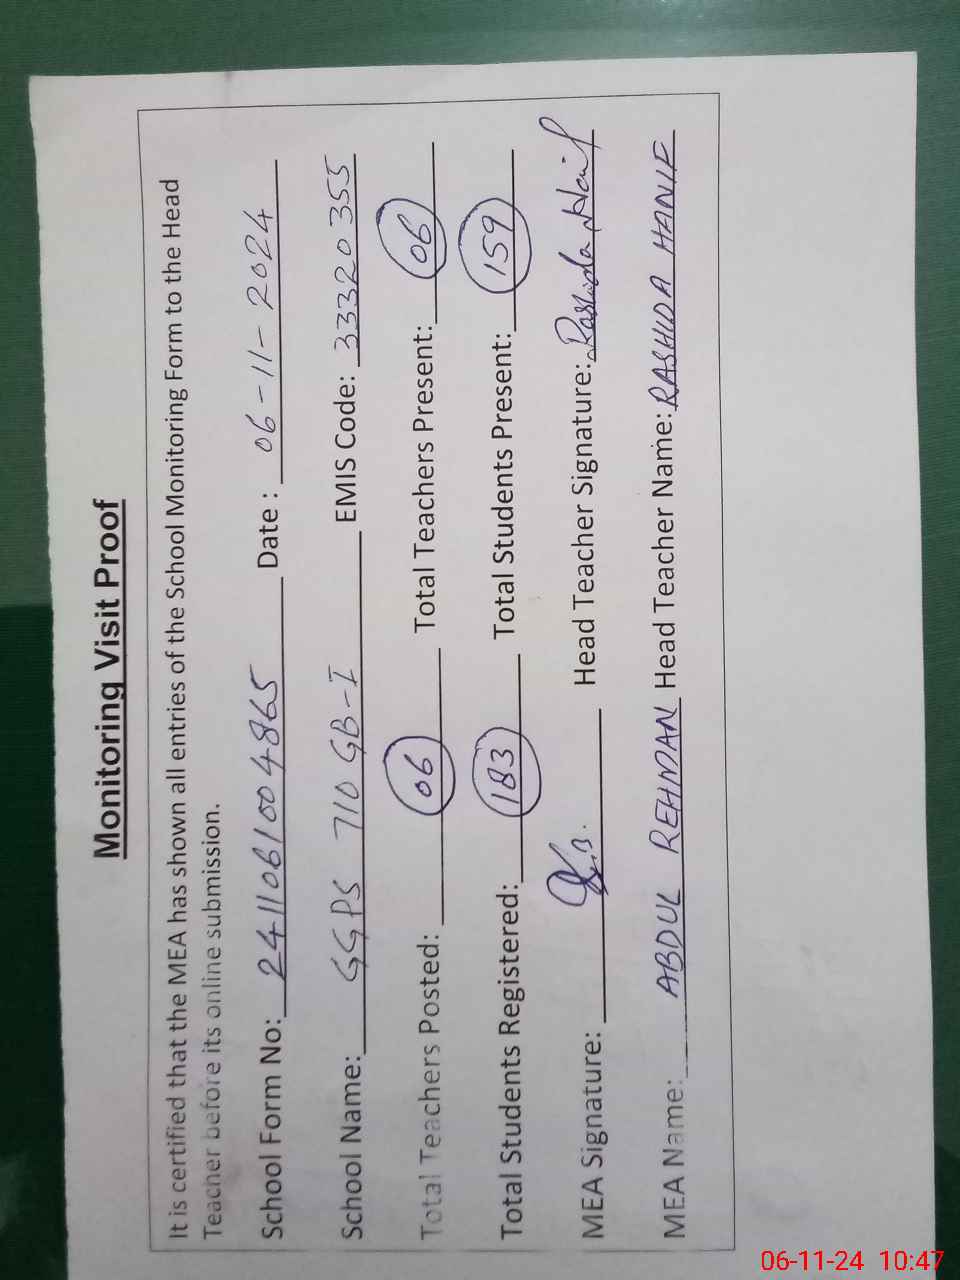 Monitoring Visit Proof
It is certified that the MEA has shown all entries of the School Monitoring Form to the Head
Teacher before its online submission.
School Form No: 2411061004865 Date : 06-11-2024
School Name: GGPS 710 GB-I EMIS Code: 33320355
Total Teachers Posted: 06 Total Teachers Present: 06
Total Students Registered: 183 Total Students Present: 159
MEA Signature: Head Teacher Signature: Rashida Hanif
MEA Name: ABDUL REHMAN Head Teacher Name: RASHIDA HANIF
06-11-24 10:47